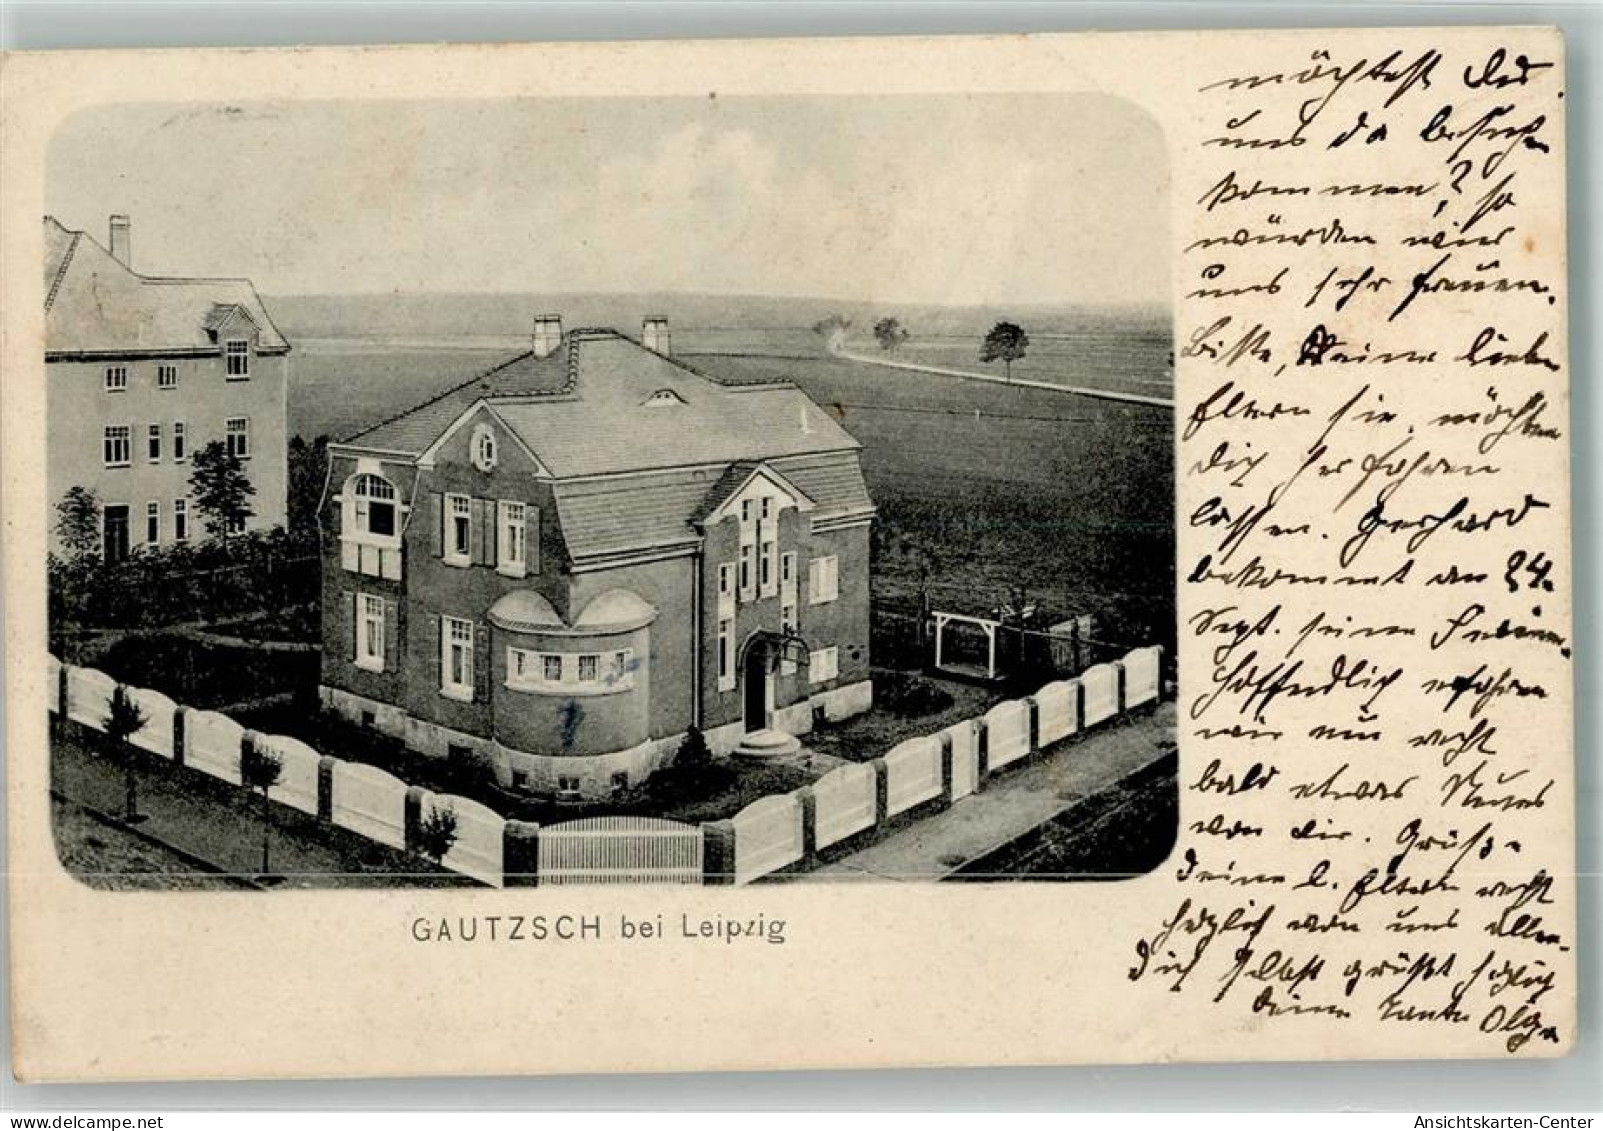 möchtest Du
uns da besuchen
kommen? so
würden wir
uns sehr freuen.
Bitte, Deine lieben
Eltern sie möchten
Dich herfahren
lassen. Gerhard
bekommt am 24.
Sept. seine Ferien.
Hoffendlich erfahren
wir nun recht
bald etwas Neues
von dir. Grüße
Deine l. Eltern recht
herzlich von uns allen.
Dich selbst grüßt hzlich
Deine Tante Olga
GAUTZSCH bei Leipzig
delcampe.net
Ansichtskarten-Center